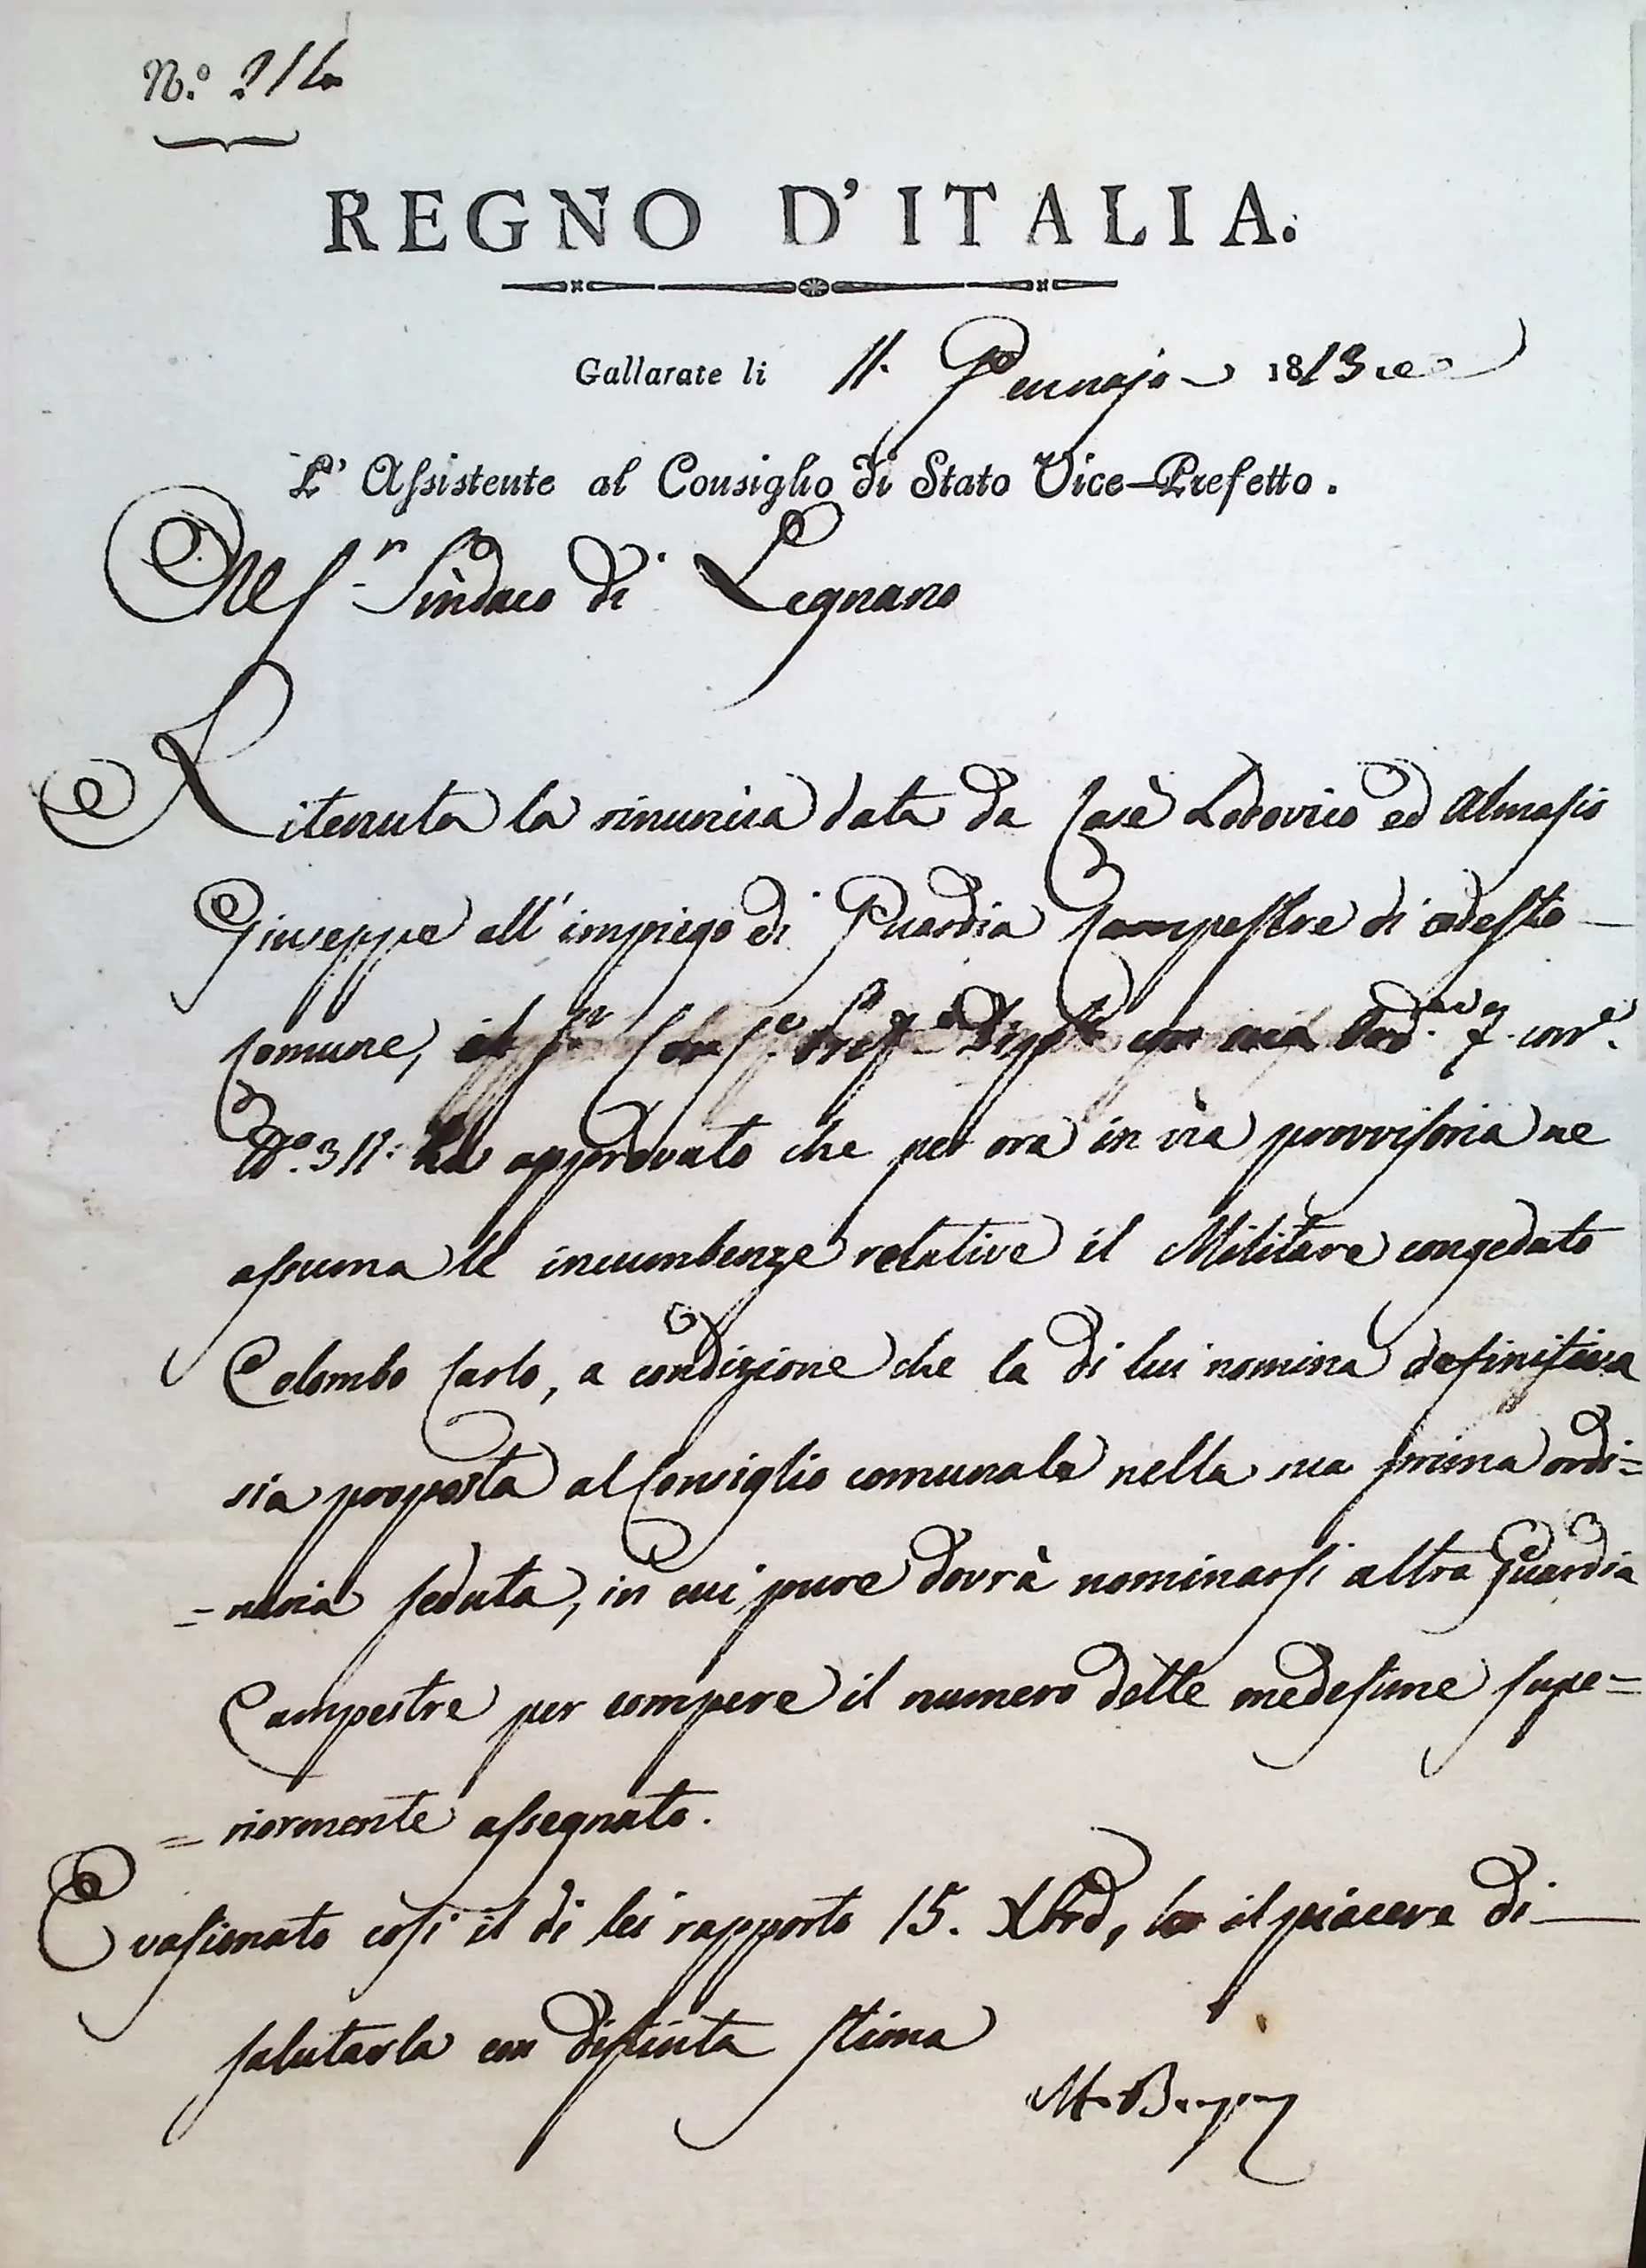 N.º 214
REGNO D'ITALIA.
Gallarate li 11. Gennajo 1813
L'Assistente al Consiglio di Stato Vice-Prefetto.
Al S.r Sindaco di Legnano
Ritenuta la rinuncia data da Casè Lodovico ed Almasio
Giuseppe all'impiego di Guardia Campestre di codesto
Comune, il Pref.o con 7. corr.e
N.º 311. ha approvato che per ora in via provvisoria ne
assuma le incumbenze relative il Militare congedato
Colombo Carlo, a condizione che la di lui nomina definitiva
sia proposta al Consiglio comunale nella sua prima ordi=
=naria seduta, in cui pure dovrà nominarsi altra Guardia
Campestre per compere il numero delle medesime supe=
=riormente assegnato.
Evasionato così il di lei rapporto 15. Xbrè, ho il piacere di
salutarla con distinta stima